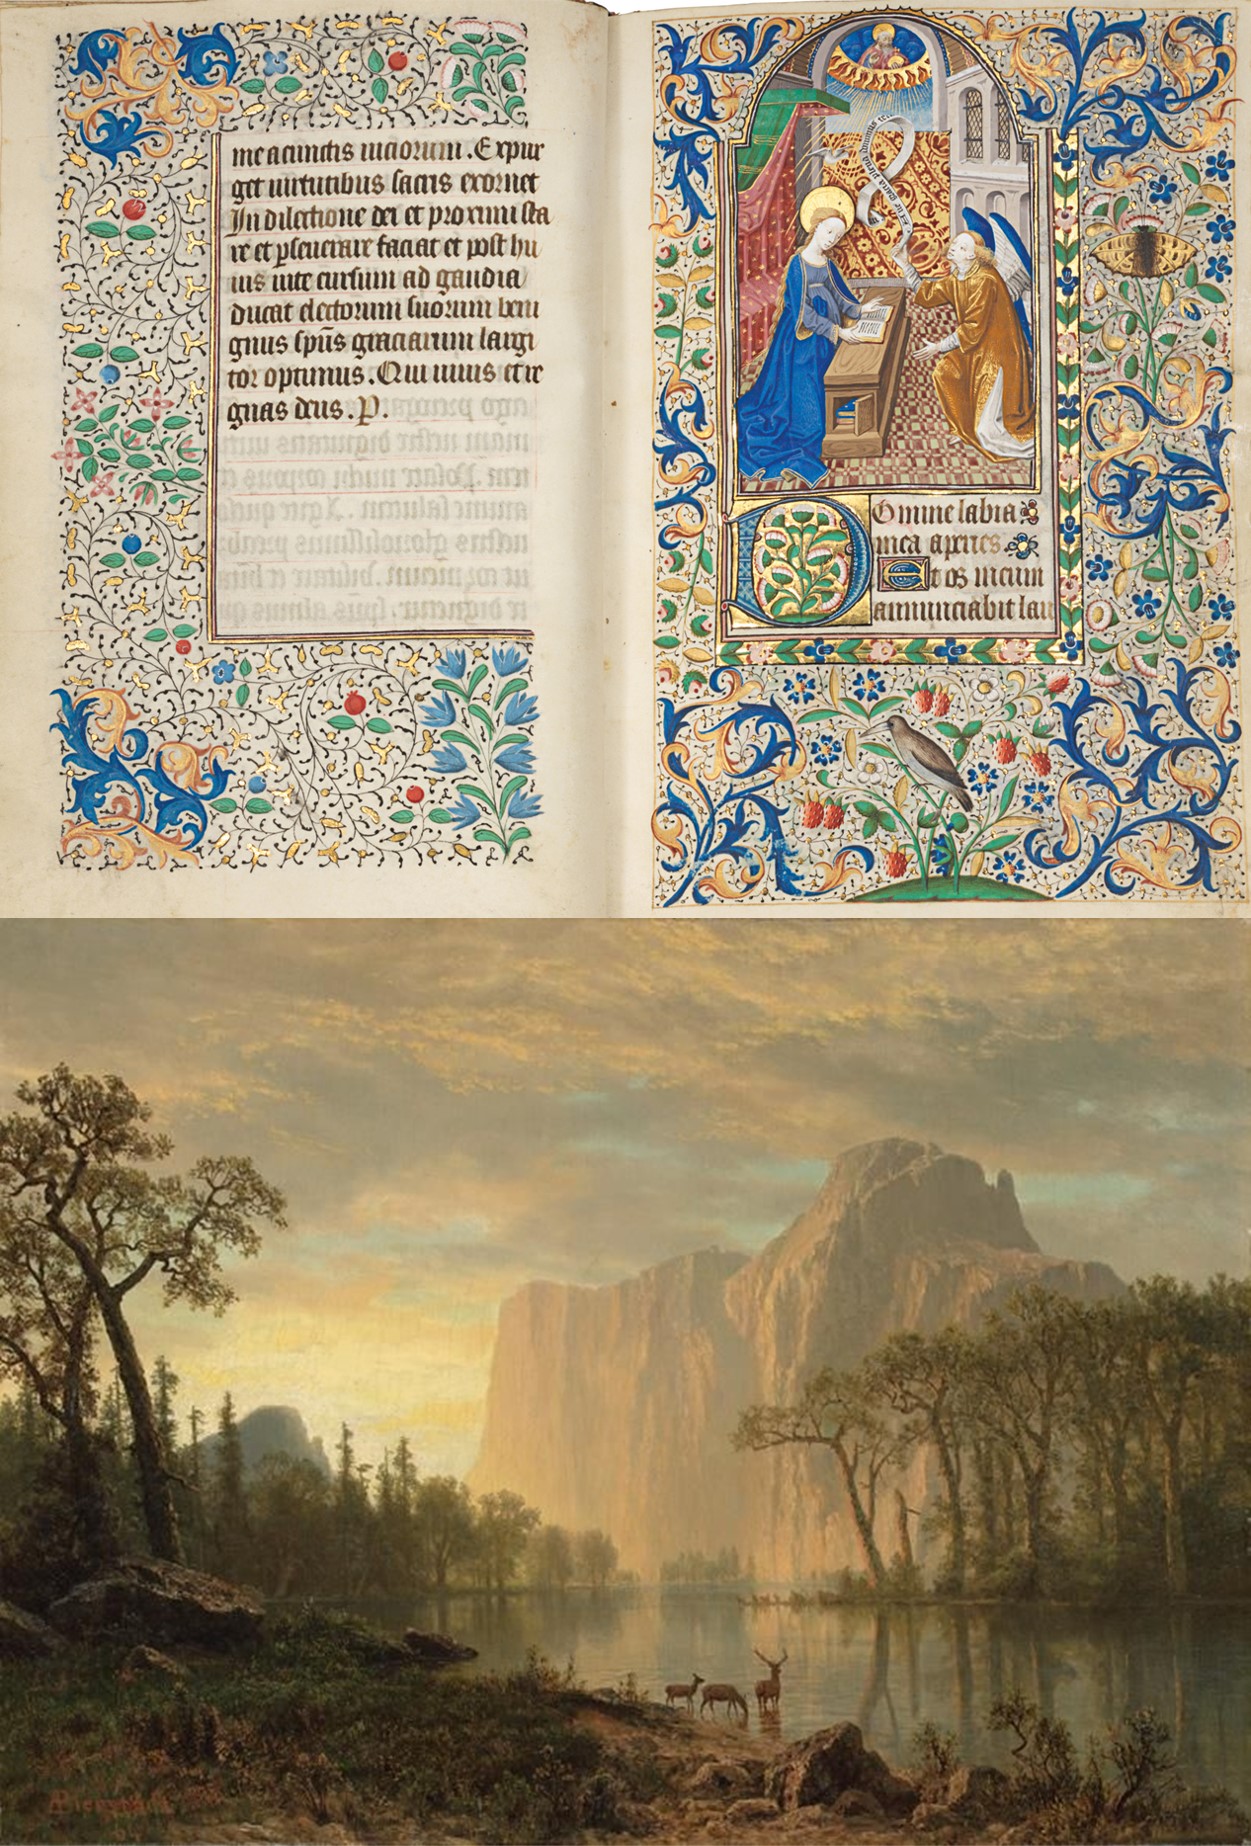 me a cunctis uiciorum. Expur
get uirtutibus sacris exornet
In dilectione dei et proximi sta
re et pseuerare faciat et post hu
ius uite cursum ad gaudia
ducat electorum suorum beni
gnus spūs graciarum largi
tor optimus. Qui uiuis et re
gnas deus. P.
gracia plena dominus
Domine labia
mea aperies
Et os meum
annunciabit lau
ABierstadt